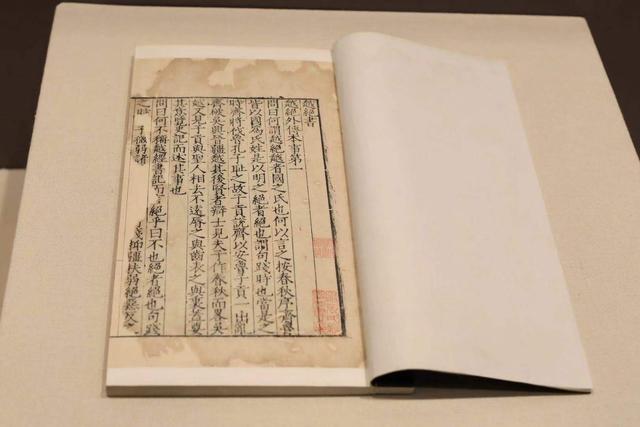 越絕書
越絕外傳本事第一
問曰何謂越絕越者國之氏也何以言之按春秋序齊魯
皆以國為氏姓是以明之絕者絕也謂句踐時也當是之
時齊將伐魯孔子恥之故子貢說齊以安魯子貢一出亂
齊破吳興晉疆越其後賢者辯士見夫子作春秋而畧吳
越又見子貢與聖人相去不遠脣之與齒表之與裏蓋要
其意覽史記而述其事也
問曰何不稱越經書記而言絕乎曰不也絕者絕也句踐
之時 子微弱諸 踐抑疆扶弱絕惡反之